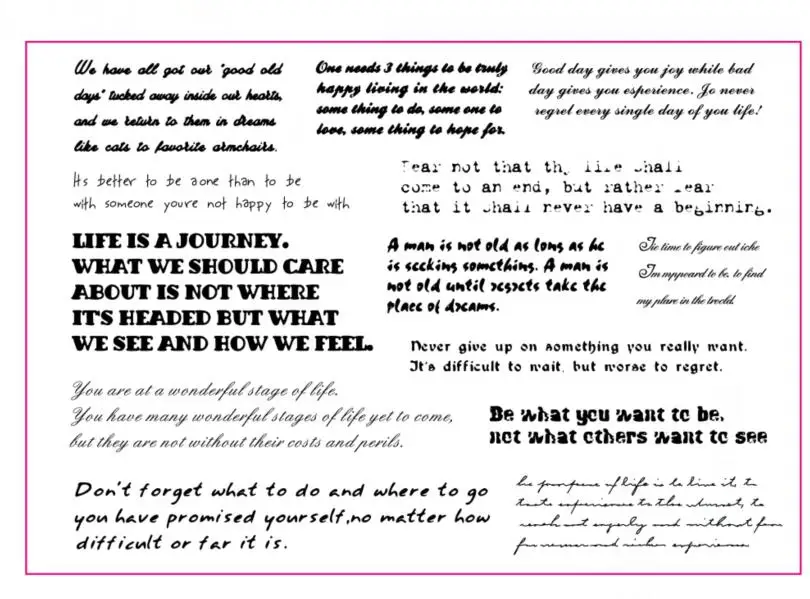 We have all got our "good old
days" tucked away inside our hearts,
and we return to them in dreams
like cats to favorite armchairs.
One needs 3 things to be truly
happy living in the world:
some thing to do, some one to
love, some thing to hope for.
Good day gives you joy while bad
day gives you esperience. Jo never
regrel every single day of you life!
Its better to be a one than to be
with someone youre not happy to be with
Fear not that thy life shall
come to an end, but rather fear
that it shall never have a beginning.
LIFE IS A JOURNEY.
WHAT WE SHOULD CARE
ABOUT IS NOT WHERE
IT'S HEADED BUT WHAT
WE SEE AND HOW WE FEEL.
A man is not old as long as he
is seeking something. A man is
not old until regrets take the
place of dreams.
time to figure out
to be, to find
my in the
Never give up on something you really want.
It's difficult to wait, but worse to regret.
You are at a wonderful stage of life.
You have many wonderful stages of life yet to come,
but they are not without their costs and perils.
Be what you want to be,
not what others want to see
Don't forget what to do and where to go
you have promised yourself,no matter how
difficult or far it is.
purpose of life is to live it, to
taste experience to the utmost, to
reach out eagerly and without fear
for newer and richer experience